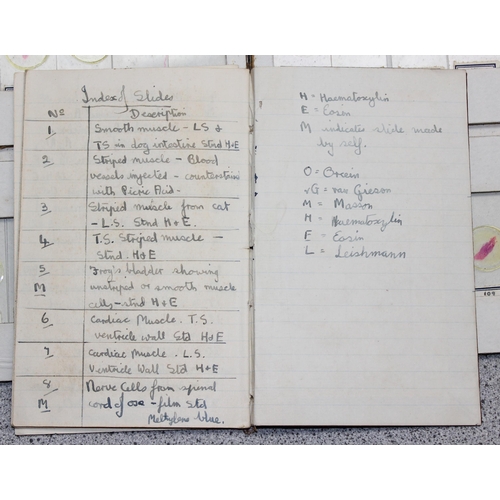 Index of Slides
No Description
1 Smooth muscle - LS &
TS in dog intestine Stnd H&E
2 Striped muscle - Blood
vessels injected - counterstain
with Picric Acid -
3 Striped muscle from cat
- L.S. Stnd H & E.
4 T.S. Striped muscle -
Stnd. H & E
5 Frog's bladder showing
M unstriped or smooth muscle
cells - stnd H & E
6 Cardiac Muscle. T.S.
ventricle wall Std H&E
7 Cardiac Muscle. L.S.
Ventricle Wall Std H&E
8 Nerve Cells from spinal
M cord of ox - film Std
Methylene blue.
H = Haematoxylin
E = Eosin
M indicates slide made
by self.
O = Orcein
vG = van Gieson
M = Masson
H = Haematoxylin
E = Eosin
L = Leishmann